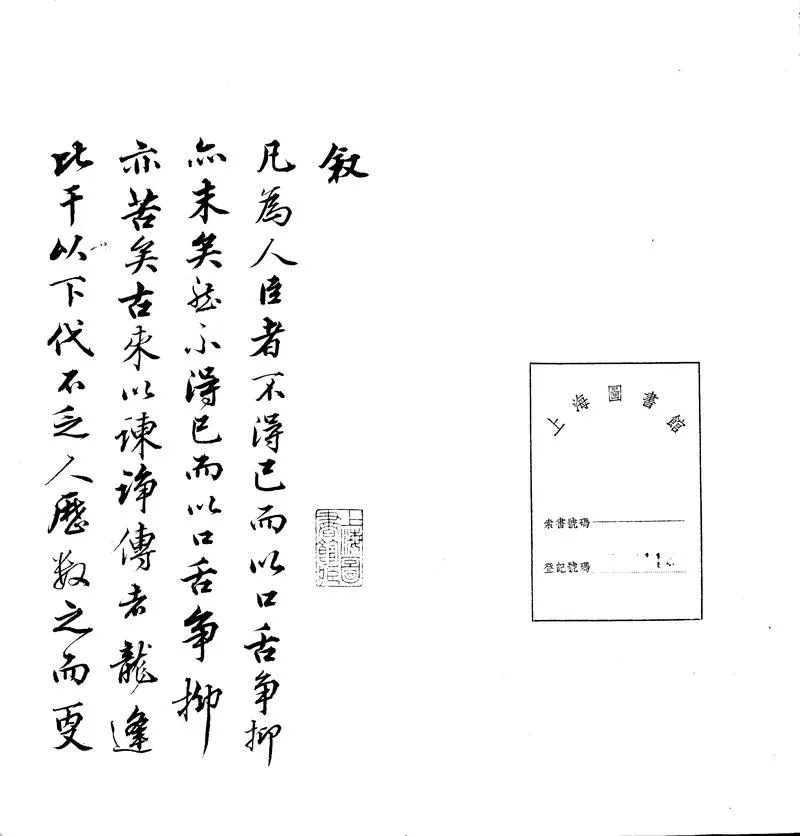 上海圖書館
索書號碼
登記號碼
叙
凡為人臣者不得已而以口舌争抑
亦末矣然不得已而以口舌争抑
亦苦矣古來以諫諍傳者龍逢
比干以下代不乏人歷数之而更
上海圖書館藏